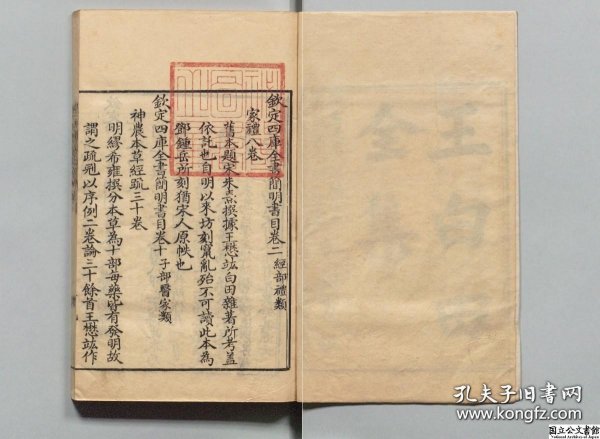 欽定四庫全書簡明書目卷二 經部禮類
家禮八卷
舊本題宋朱熹撰據王懋竑白田雜著所考蓋
依託也自明以來坊刻竄亂殆不可讀此本為
鄧鍾岳所刻猶宋人原帙也
欽定四庫全書簡明書目卷十 子部醫家類
神農本草經疏三十卷
明繆希雍撰分本草為十部每藥皆有發明故
謂之疏冠以序例二卷論三十餘首王懋竑作
王白田
全集
孔夫子旧书网
www.kongfz.com
国立公文書館
National Archives of Japan